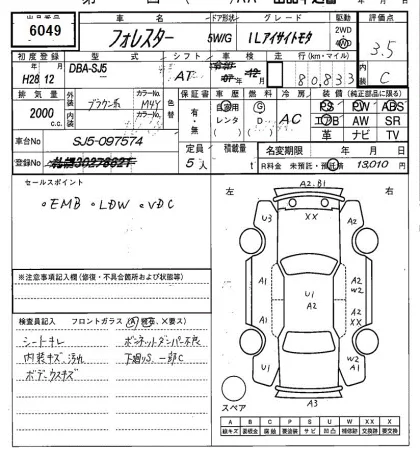 出品番号 車名 ドア形状 グレード 駆動 評価点
6049 フォレスター 5W/G 1Lアイサイトモタ 2WD 4WD 3.5
初度登録 型式 シフト 車検 走行(km・マイル) 内装
H28 年 12 月 DBA-SJ5 AT 年 月 80,833 C
排気量 外装 ブラウン系 カラーNo. M4Y 色替 保証書 車歴 燃料 冷房 装備(純正部品に限る)
2000 c.c. 内装 カラーNo. 有・無 自家用 レンタ G D AC PS PW ABS
エアB AW SR
革 ナビ TV
車台No SJ5-097574 定員 積載量 名変期限 年 月 日
登録No 5人 t R料金 未預託・預託済 13,010 円
セールスポイント
・EMB ・LDW ・VDC
左 右
A2.B1
U3 XX A2
A1 U1 A2 A2 W2
A1 A2 XX
U3 W2 A1
A3
スペア
※注意事項記入欄(修復・不具合箇所および状態等)
検査員記入 フロントガラス(A 飛石、X要ス)
シートキレ ボンネットダンパー不良
内装キズ、汚れ 下廻りS 一部C
ボデーウスキズ
A B C P S U W X XX
線キズ 要板金 腐食 要塗装 サビ 凹凸 補修跡 交換跡 要交換